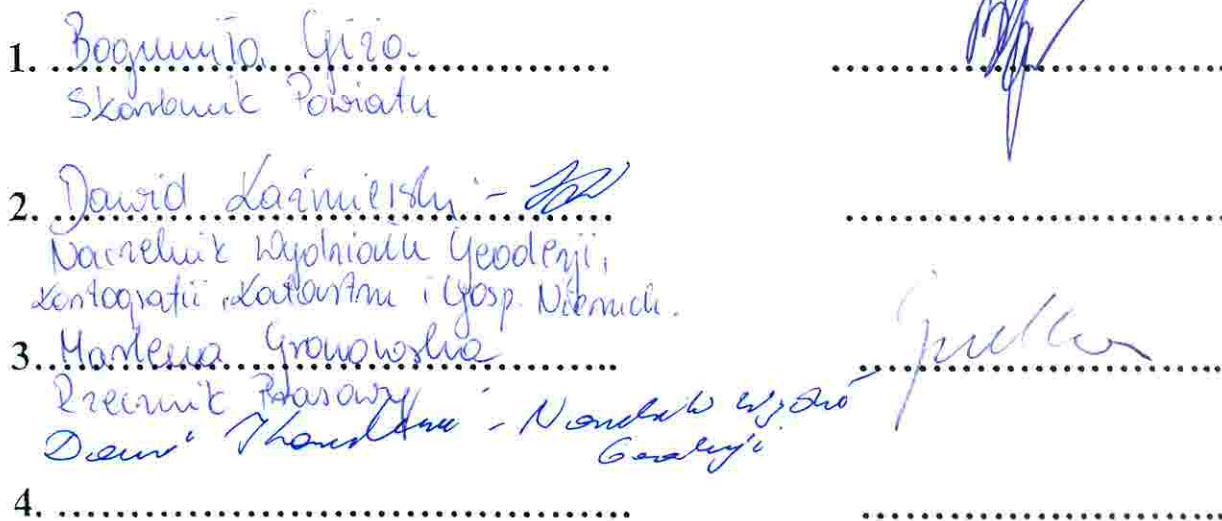 1. Bogumiła Giza
Skarbnik Powiatu
2. Dawid Kaźmierski -
Naczelnik Wydziału Geodezji,
Kartografii, Katastru i Gosp. Nieruch.
3. Marlena Gronowska
Rzecznik Prasowy
- Wydzi
Geodezji
4.